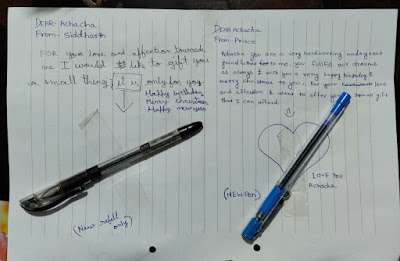 DEAR Achacha
From- Siddharth
FOR your love and affection towards
me I would like to gift you
a small thing, it is only for you
Happy birthday
Merry christmas
Happy new year
(New refill
only)
DEAR Achacha
From- Prince
Achacha you are a very hardworking and a great
grandfather to me. you fulfill our dreams
as always I wish you a very happy birthday &
merry christmas to you. For your love
and affection I want to offer you a small gift
that I can afford.
(NEW PEN)
LOVE YOU
Achacha